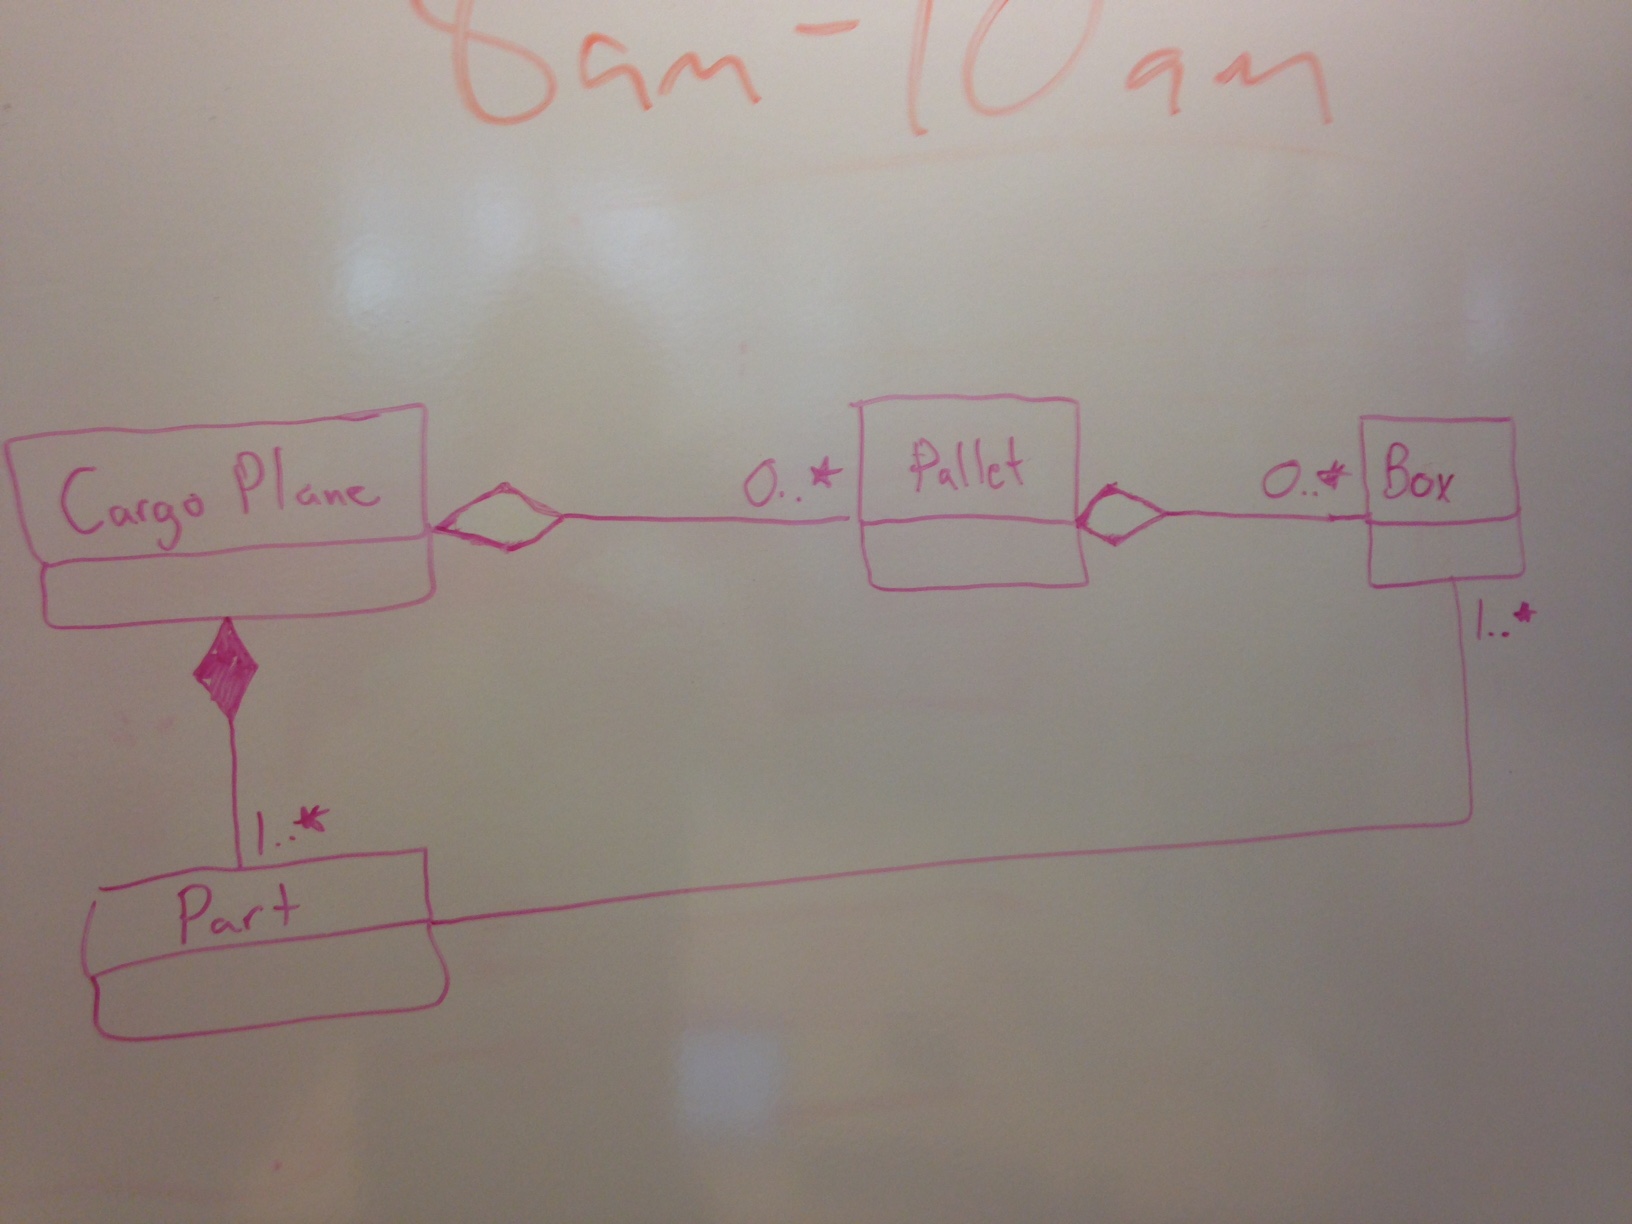 8am-10am
Cargo Plane
0..*
Pallet
0..*
Box
1..*
1..*
Part